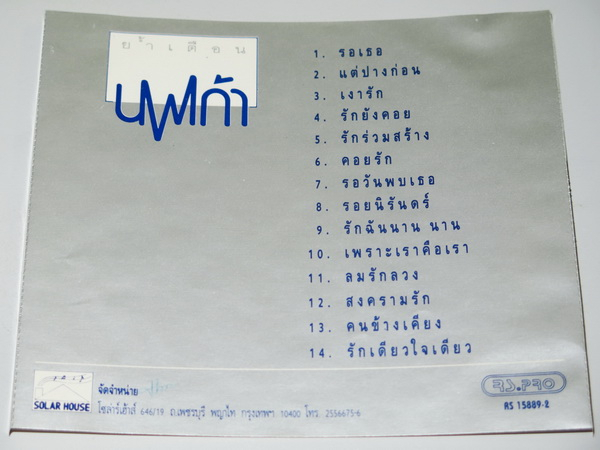 ย้ำเตือน
นฟก้า
1. รอเธอ
2. แต่ปางก่อน
3. เงารัก
4. รักยังคอย
5. รักร่วมสร้าง
6. คอยรัก
7. รอวันพบเธอ
8. รอยนิรันดร์
9. รักฉันนาน นาน
10. เพราะเราคือเรา
11. ลมรักลวง
12. สงครามรัก
13. คนข้างเคียง
14. รักเดียวใจเดียว
SOLAR HOUSE
จัดจำหน่าย
โซล่าร์เฮ้าส์ 646/19 ถ.เพชรบุรี พญาไท กรุงเทพฯ 10400 โทร. 2556675-6
RS.PRO
RS 15889-2